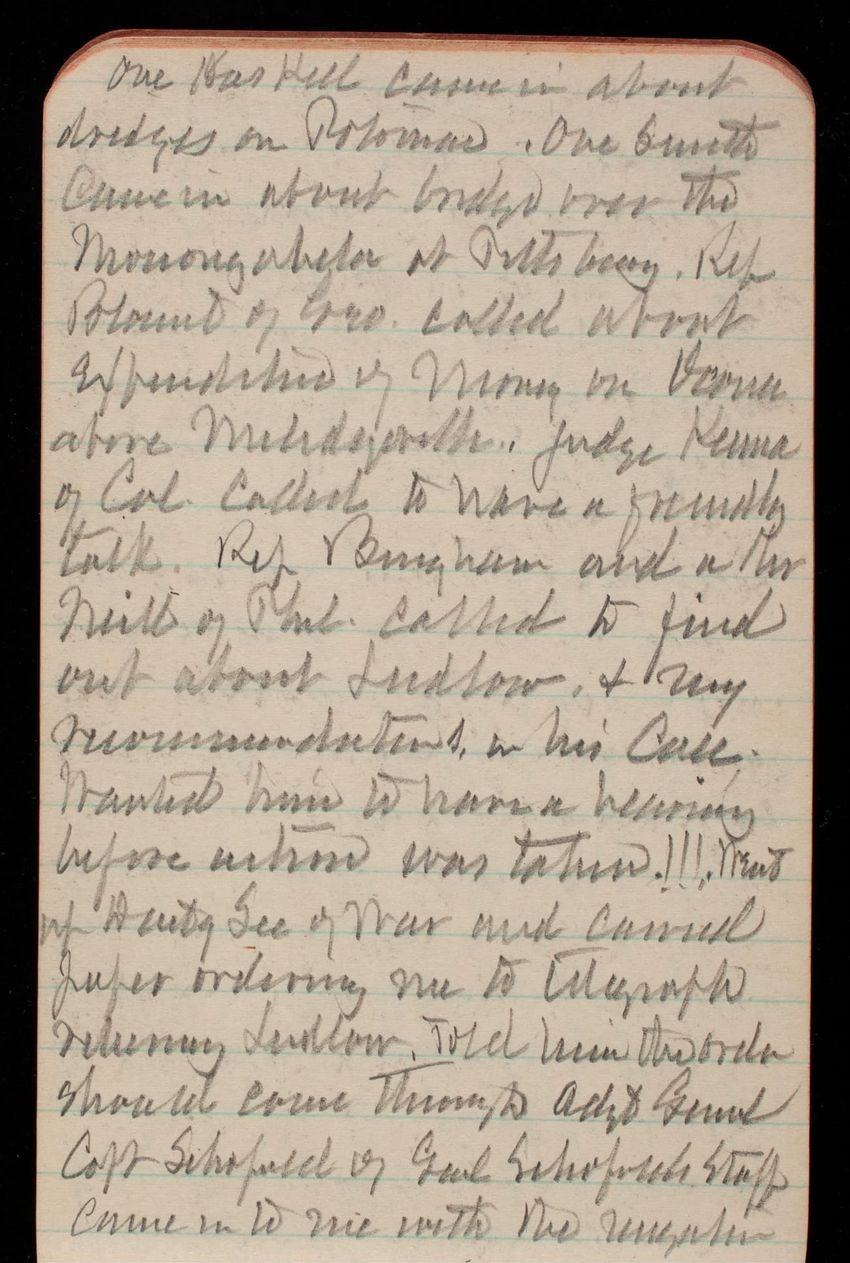 One Haskell came in about
dredges on Potomac. One Smith
Came in about bridge over the
Monongahela at Pittsburg. Rep
Blount of Geo. called about
Expenditure of Money on Oconee
above Milledgeville. Judge Kenna
of Cal. Called to have a friendly
talk. Rep Bingham and a Mr
Neill of Phil. called to find
out about Ludlow, & my
recommendations, in his Case.
Wanted him to have a hearing
before action was taken.!!!. Went
up to Sec of War and carried
paper ordering me to telegraph
relieving Ludlow. Told him the order
should come through Adjt Genral
Capt Schofield of Genl Schofields Staff
Came in to me with the